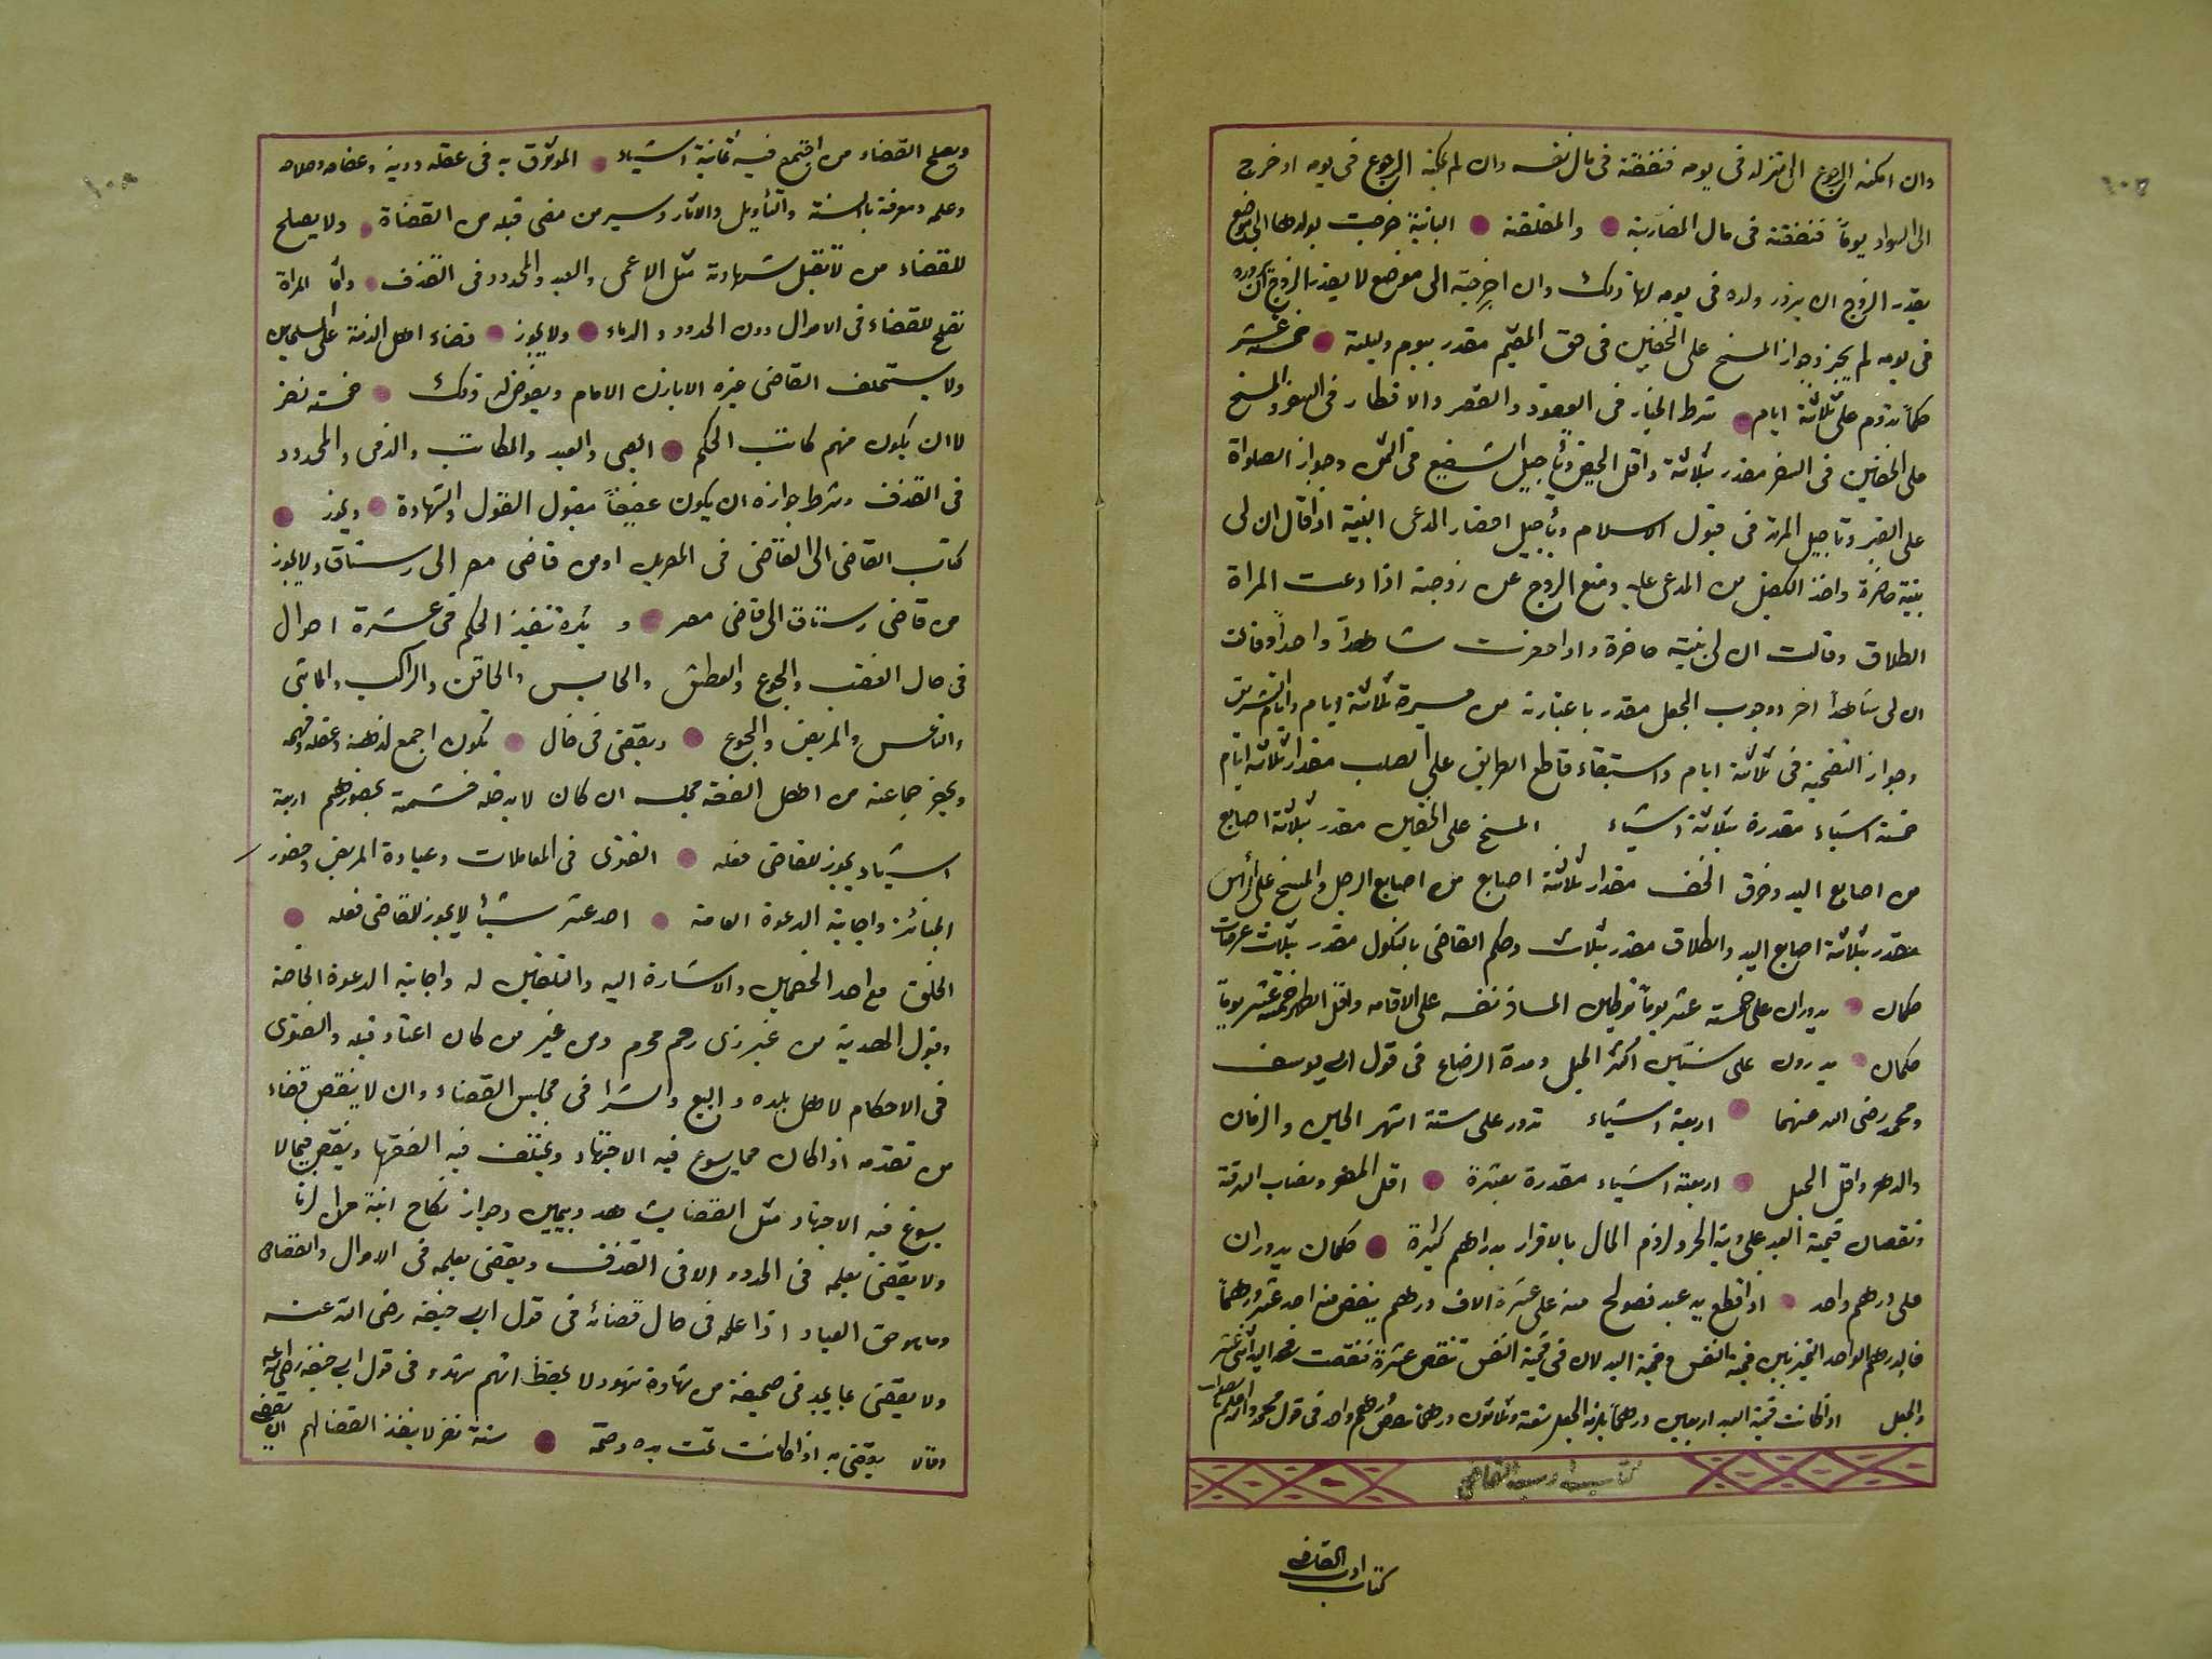 وان امكنه الرجوع الى منزله فى يومه فنفقته فى مال نفسه وان لم يمكنه الرجوع فى يومه او خرج
الى السواد يوماً فنفقته فى مال المضاربة والمطلقة البائنة خرجت بولدها الى موضع
يقدر الزوج ان يزور ولده فى يومه لها ذلك وان اخرجته الى موضع لا يقدر الزوج ان يزوره
فى يومه لم يجز وجواز المسح على الخفين فى حق المقيم مقدر بيوم وليلة خمسة عشر
حكماً تدوم على ثلاثة ايام شرط الخيار فى العقود والقصر والافطار فى السفر والمسح
على الخفين فى السفر مقدر بثلاثة واقل الحيض وتأجيل الشفيع فى الثمن وجواز الصلواة
على القبر وتاجيل المرتد فى قبول الاسلام وتأجيل احضار المدعى البينة اذا قال ان لى
بينة حاضرة واخذ الكفيل من المدعى عليه ومنع الزوج عن زوجته اذا دعت المراة
الطلاق وقالت ان لى بينة حاضرة واذا احضرت شاهداً واحداً وقالت
ان لى شاهداً اخر ووجوب الجعل مقدر باعتباره من مسيرة ثلاثة ايام وايام التشريق
وجواز التضحية فى ثلاثة ايام واستبقاء قاطع الطريق على الصلب مقدار ثلاثة ايام
خمسة اشياء مقدرة بثلاثة اشياء المسح على الخفين مقدر بثلاثة اصابع
من اصابع اليد وخرق الخف مقدار ثلاثة اصابع من اصابع الرجل والمسح على الرأس
مقدر بثلاثة اصابع اليد والطلاق مقدر بثلاث وحكم القاضى بالنكول مقدر بثلاث عرضات
حكمان يدوران على خمسة عشر يوماً توطين المسافر نفسه على الاقامه واقل الطهر خمسة عشر يوماً
حكمان يدوران على سنتين أكثر الحبل ومدة الرضاع فى قول ابى يوسف
ومحمد رضى الله عنهما اربعة اشياء تدور على ستة اشهر الحين والزمان
والدهر واقل الحبل اربعة اشياء مقدرة بعشرة اقل المهر ونصاب السرقة
ونقصان قيمة العبد على دية الحر ولزم المال بالاقرار بدراهم كثيرة حكمان يدوران
على درهم واحد اذا قطع يد عبد فصولح منه على عشرة الاف درهم ينقص منه احد عشر درهماً
فالدرهم الواحد بين قيمة النفس وقيمة اليد لان فى قيمة النفس تنقص عشرة فنقصت
والجعل اذا كانت قيمة العبد اربعين درهماً يلزمه الجعل تسعة وثلاثون درهماً درهم واحد فى قول محمد
كتاب ادب القاضى
كتاب ادب القاضى
ويصلح للقضاء من اجتمع فيه ثمانية اشياء الموثوق به فى عقله ودينه وعفافه وصلاحه
وعلمه ومعرفة بالسنة والتأويل والاثار وسير من مضى قبله من القضاة ولا يصلح
للقضاء من لا تقبل شهادته مثل الاعمى والعبد والمحدود فى القذف وانما المراة
تصلح للقضاء فى الاموال دون الحدود والدماء ولا يجوز قضاء اهل الذمة على المسلمين
ولا يستخلف القاضى غيره الا باذن الامام ويفوض له ذلك خمسة نفر
لا ان يكون منهم كاتب الحكم الصبى والعبد والمكاتب والذمى والمحدود
فى القذف وشرط جوازه ان يكون عفيفاً مقبول القول والشهادة ويجوز
كتاب القاضى الى القاضى فى المصرين او من قاضى مصر الى رستاق ولا يجوز
من قاضى رستاق الى قاضى مصر و يكره تنفيذ الحكم فى عشرة احوال
فى حال الغضب والجوع والعطش والحابس والحاقن والراكب والماشى
والناعس والمريض والجوع ويقضى فى حال تكون اجمع لذهنه وعقله وفهمه
ويحضر جماعة من اهل الفقه مجلسه ان كان لا يدخله حشمة بحضورهم اربعة
اشياء يجوز للقاضى فعله الفتوى فى المعاملات وعيادة المريض وحضور
الجنائز واجابة الدعوة العامة احد عشر شيئاً لا يجوز للقاضى فعله
الخلوة مع احد الخصمين والاشارة اليه والتلقين له واجابة الدعوة الخاصة
وقبول الهدية من غير ذى رحم محرم ومن غير من كان اعتاد قبله والفتوى
فى الاحكام لاهل بلده والبيع والشرا فى مجلس القضاء وان لا ينقض قضاء
من تقدمه اذا كان مما يسوغ فيه الاجتهاد ويختلف فيه الفقها وينقض فيما لا
يسوغ فيه الاجتهاد مثل القضا بشاهد ويمين وجواز نكاح ابنة من الزنا
ولا يقضى بعلمه فى الحدود الا فى القذف ويقضى بعلمه فى الاموال والقصاص
وما هو حق العباد اذا علمه فى حال قضائه فى قول ابى حنيفه رضى الله عنه
ولا يقضى بما يجد فى صحيفة من شهادة شهود لا يحفظ انهم شهدوا فى قول ابى حنيفه رضى الله عنه
وقالا يقضى به اذا كانت تحت يده وختمه ستة نفر لا ينفذ القضا لهم